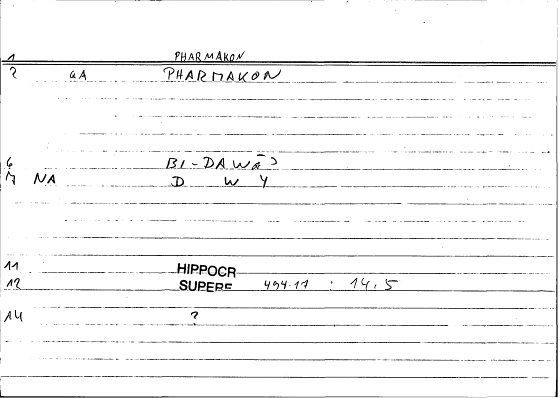 1 PHARMAKON
2 GA PHARMAKON
6 BI-DAWĀʾ
7 NA D W Y
11 HIPPOCR
12 SUPERF 494.11 : 14.5
14 ?